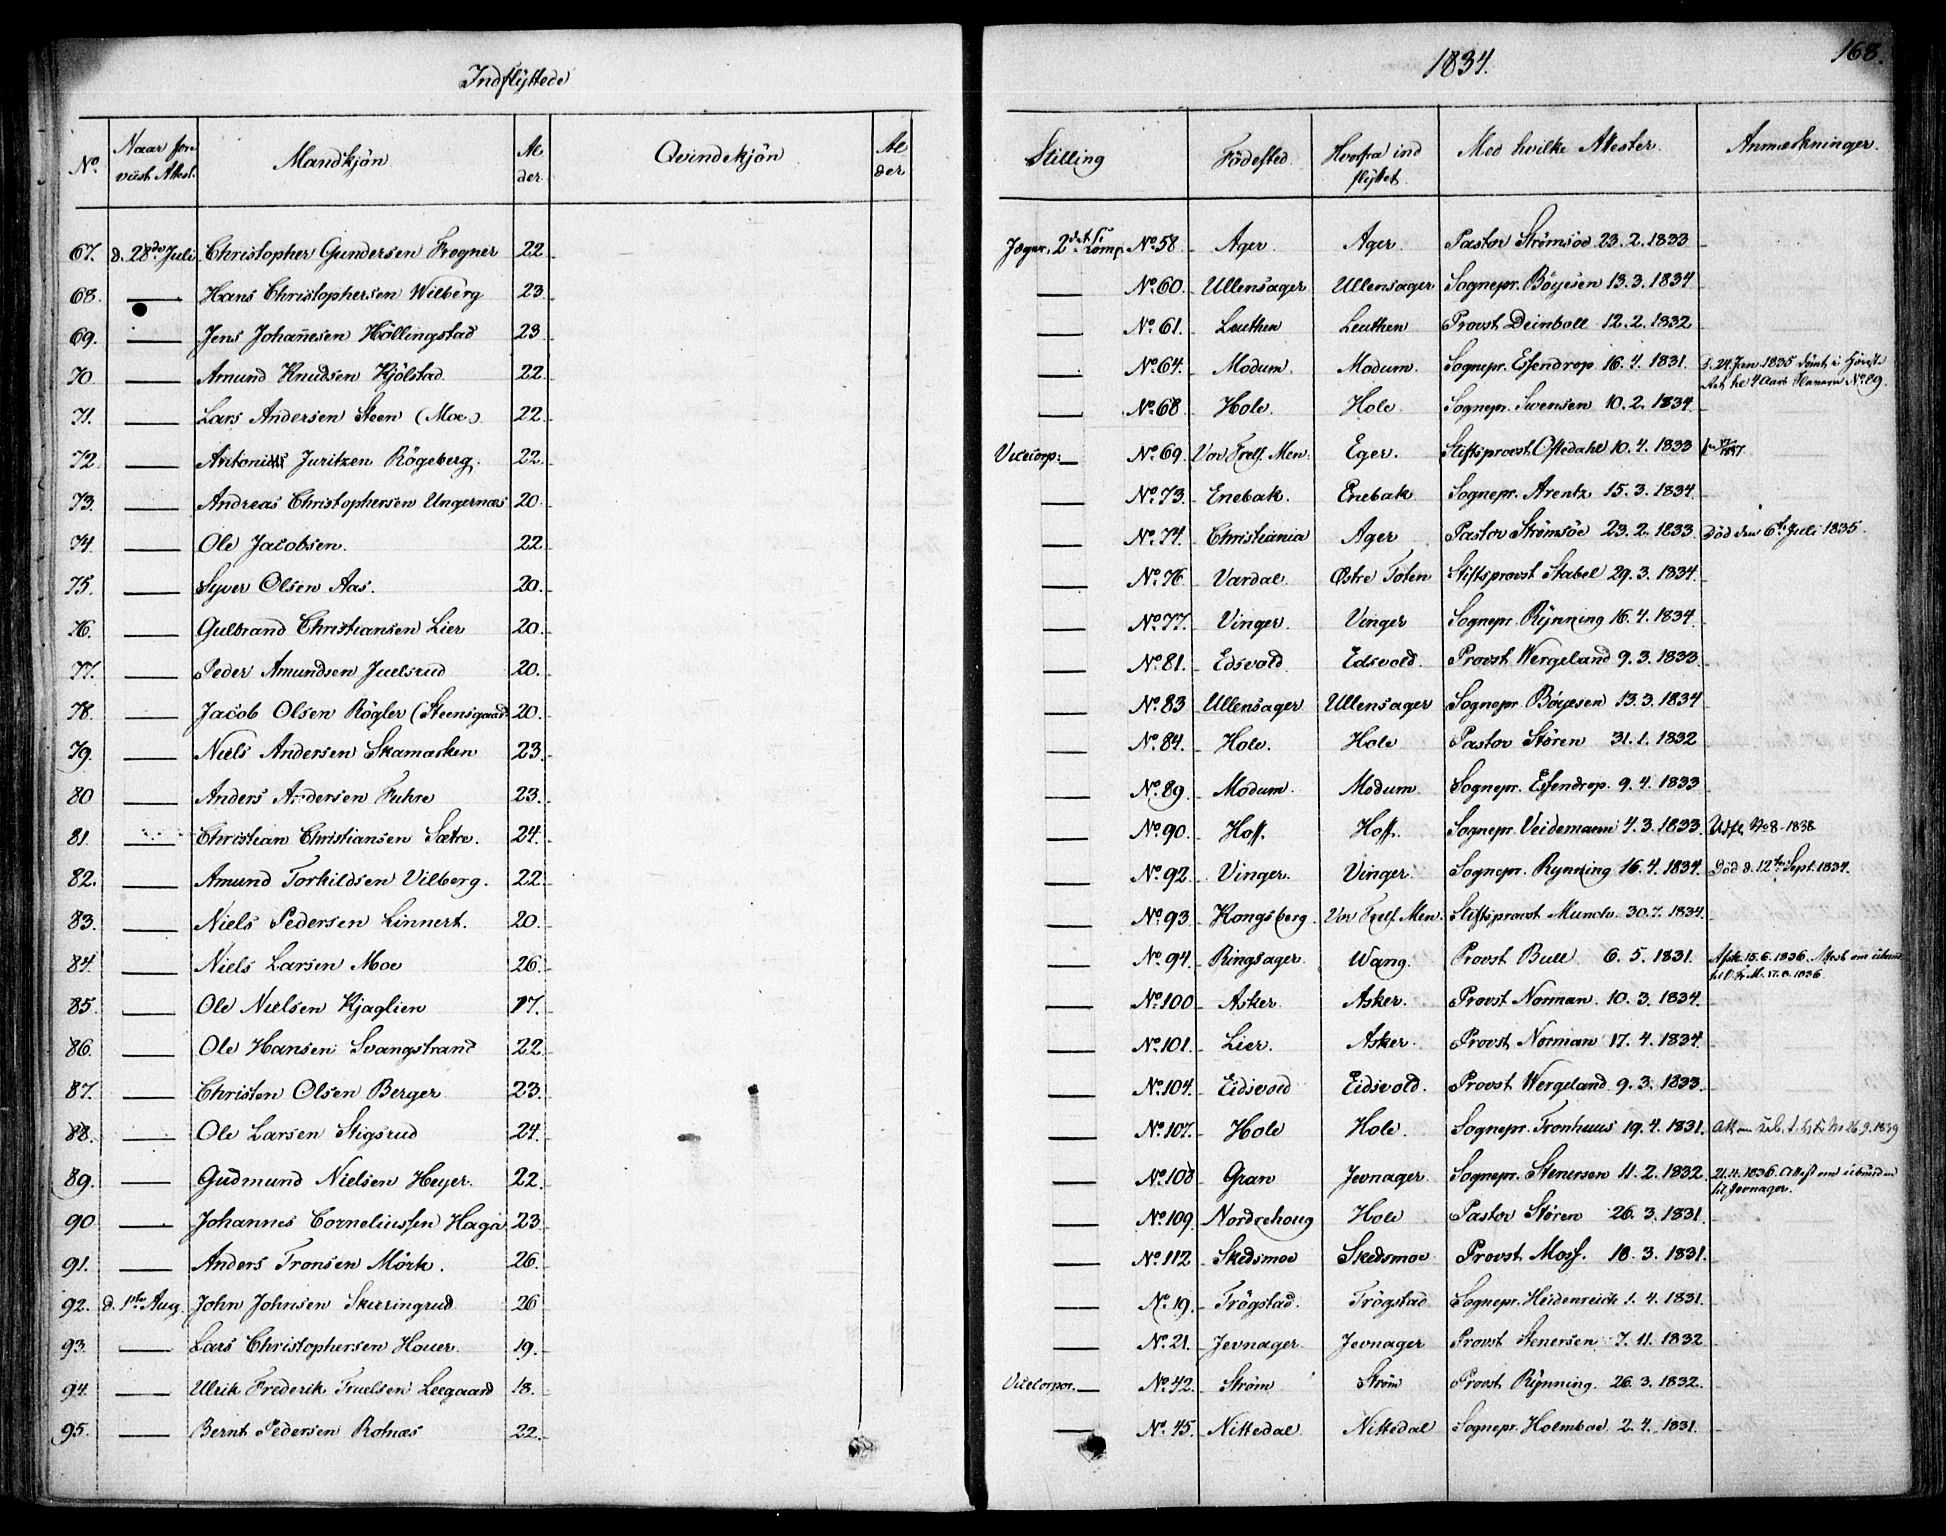 Indflyttede
1834.
168.
No Naar fore viist Attest. Mandkjön Al der Qvindekjön Al der Stilling Födested. Hvorfra ind flyttet. Med hvilke Attester. Anmærkninger.
67. d. 28de Juli Christopher Gundersen Frogner 22 Jæger. 2det Comp. No. 58 Ager. Ager. Pastor Strømsøe 23.2.1833
68. — Hans Christophersen Wilberg 23 — No. 60. Ullensager Ullensager Sognepr. Böyesen 13.3.1834
69. — Jens Johannesen Höllingstad 23. — No. 61. Leuthen Leuthen Provst Deinboll 12.2.1832
70 — Amund Knudsen Kjölstad 22. — No. 64. Modum. Modum. Sognepr. Esendrop 16.4.1831. d. 24 Jan 1835 dömt i til 4 Aars Slaveri No. 89.
71. — Lars Andersen Steen (Moe) 22. — No. 68 Hole. Hole. Sognepr. Svensen 10.2.1834
72. — Antonius Juritzen Rögeberg. 22. Vicecorp: — No. 69. Vor Frelf. Men: Eger. Stiftsprovst Oftedahl 10.4.1833
73. — Andreas Christophersen Ungernæs 20. — No. 73. Enebak. Enebak Sognepr. Arentz 15.3.1834.
74. — Ole Jacobsen. 22 — No. 74. Christiania Ager Pastor Strømsøe 23.2.1833. Död den 6te Juli 1835.
75. — Syver Olsen Aas. 20. — No. 76 Vardal. Østre Toten Stiftsprovst Stabel 29.3.1834.
76. — Gulbrand Christiansen Lier 20. — No. 77. Vinger. Vinger Sognepr. Rynning 16.4.1834.
77. — Peder Amundsen Juelsrud 20. — No. 81. Edsvold Edsvold. Provst Wergeland 9.3.1833.
78. — Jacob Olsen Rögler (Steensgaard 20. — No. 83 Ullensager Ullensager Sognepr. Böyesen 13.3.1834
79. — Niels Andersen Skamarken 23. — No. 84. Hole. Hole Pastor Støren 31.1.1832
80 — Anders Andersen Fuhre 23. — No. 89. Modum. Modum Sognepr. Esendrop. 9.4.1833
81. Christian Christiansen Sætre. 24. — No. 90. Hoff. Hoff. Sognepr. Veidemann 4.3.1833. Udfl. No 8-1838
82. — Amund Torkildsen Vilberg. 22. — No. 92. Vinger. Vinger. Sognepr. Rynning 16.4.1834. Död d. 12te Sept. 1834.
83. — Niels Pedersen Linnert. 20. — No. 93. Kongsberg. Vor Frelf. Men. Stiftsprovst Munch. 30.7.1834.
84. — Niels Larsen Moe 26. — No. 94. Ringsager. Wang. Provst Bull 6.5.1831. Afsk. 15.6.1836. Attest om ubund til V. F. M. 17.8.1836
85. — Ole Nielsen Kjaglien 17. — No. 100 Asker. Asker. Provst Norman. 10.3.1834.
86. — Ole Hansen Svangstrand 22. — No. 101. Lier. Asker. Provst Norman 17.4.1834.
87. — Christen Olsen Berger 23. — No. 104. Eidsvold Eidsvold. Provst Wergeland 9.3.1833.
88. — Ole Larsen Stigsrud 24. — No. 107. Hole Hole. Sognepr. Tronhuus 19.4.1831. Att om 26.9.1839
89. — Gudmund Nielsen Heyer. 22. — No. 108 Gran Jevnager. Sognepr. Stenersen 11.2.1832. 21.11.1836. Attest om ubunden til Jevnager.
90 — Johannes Corneliussen Haga 23 — No. 109. Nordrehoug Hole Pastor Støren 26.3.1831.
91. — Anders Tronsen Mörk. 26. — No. 112 Skedsmoe Skedsmoe Provst Moss. 18.3.1831.
92. d. 1ste Aug. John Johnsen Skirringrud 26 — No. 19. Trögstad. Trögstad Sognepr. Heidenreich 1.4.1831.
93. — Lars Christophersen Houer. 19. — No. 21. Jevnager. Jevnager Provst Stenersen 7.11.1832
94. — Ulrik Frederik Truelsen Leegaard 18. Vicecorpor. — No. 42. Strøm Strøm Provst Rynning. 26.3.1832.
95. — Bernt Pedersen Rotnæs 22. — No. 45. Nittedal Nittedal Sognepr. Holmboe 2.4.1831.